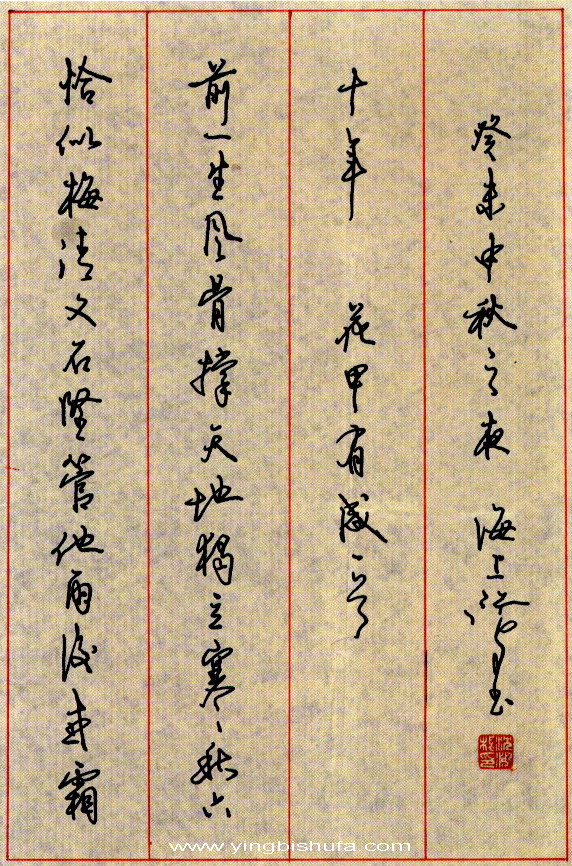 恰似梅清又石坚管他雨後或霜
前一生风骨撑天地独立寒秋六
十年 花甲有感一首
癸未中秋之夜 海上书
www.yingbishufa.com